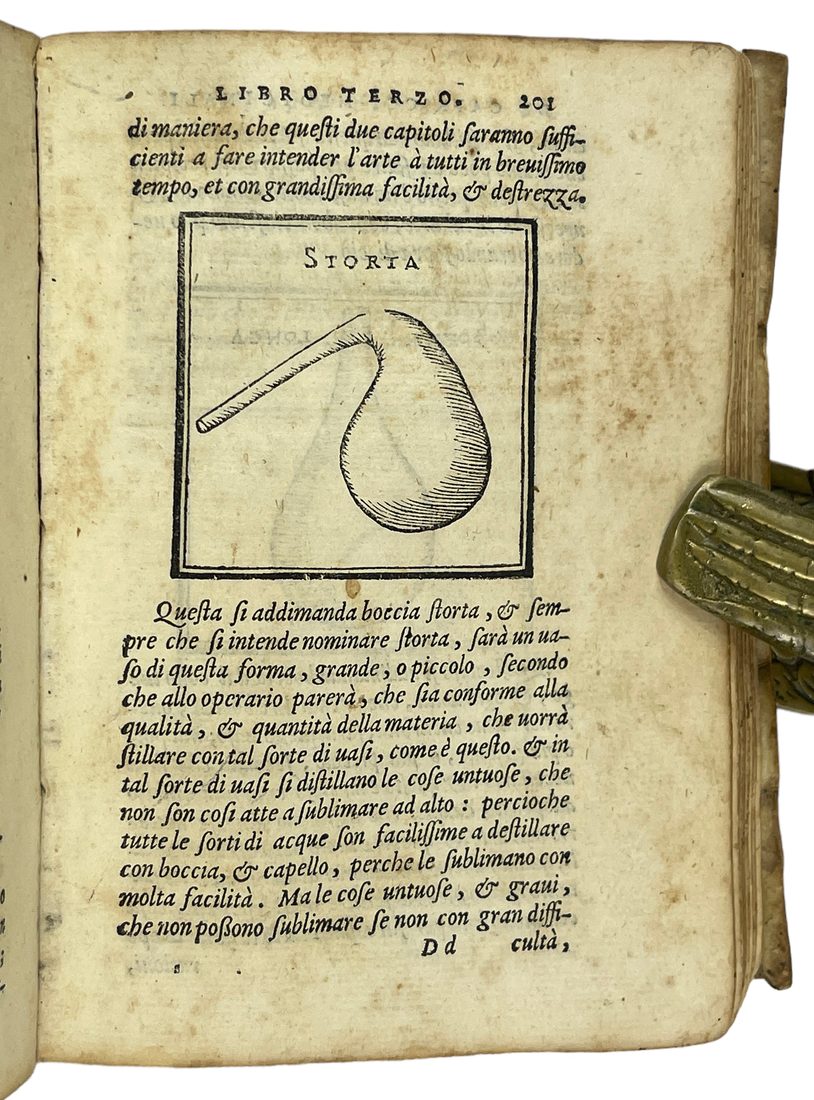 LIBRO TERZO. 201
di maniera, che queſti due capitoli ſaranno ſuffi-
cienti a fare intender l'arte à tutti in breuiſſimo
tempo, et con grandiſſima facilità, & deſtrezza.
STORTA
Queſta ſi addimanda boccia ſtorta, & ſem-
pre che ſi intende nominare ſtorta, ſarà un ua-
ſo di queſta forma, grande, o piccolo, ſecondo
che allo operario parerà, che ſia conforme alla
qualità, & quantità della materia, che uorrà
ſtillare con tal ſorte di uaſi, come è queſto. & in
tal ſorte di uaſi ſi diſtillano le coſe untuoſe, che
non ſon coſi atte a ſublimare ad alto: percioche
tutte le ſorti di acque ſon faciliſſime a deſtillare
con boccia, & capello, perche le ſublimano con
molta facilità. Ma le coſe untuoſe, & graui,
che non poßono ſublimare ſe non con gran diffi-
D d cultà,